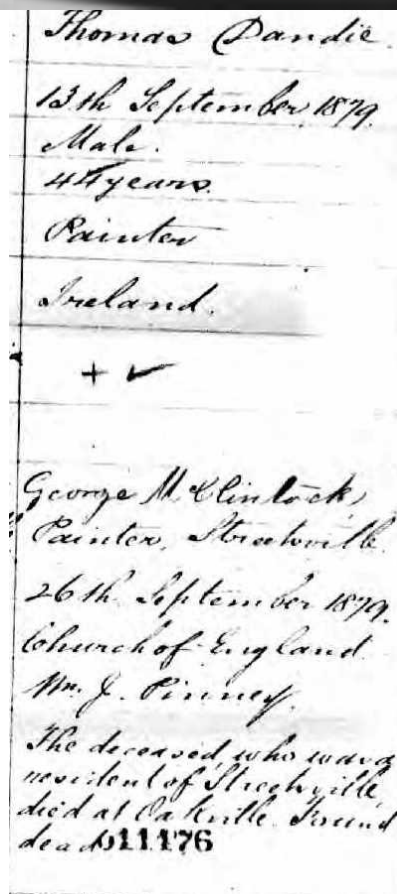 Thomas Dandie
13th September 1879.
Male.
44 years.
Painter
Ireland.
+ ✓
George McClintock,
Painter, Streetsville
26th September 1879.
Church of England
Wm. J. Pinney.
The deceased, who was a
resident of Streetsville,
died at Oakville. Found
dead. 011176